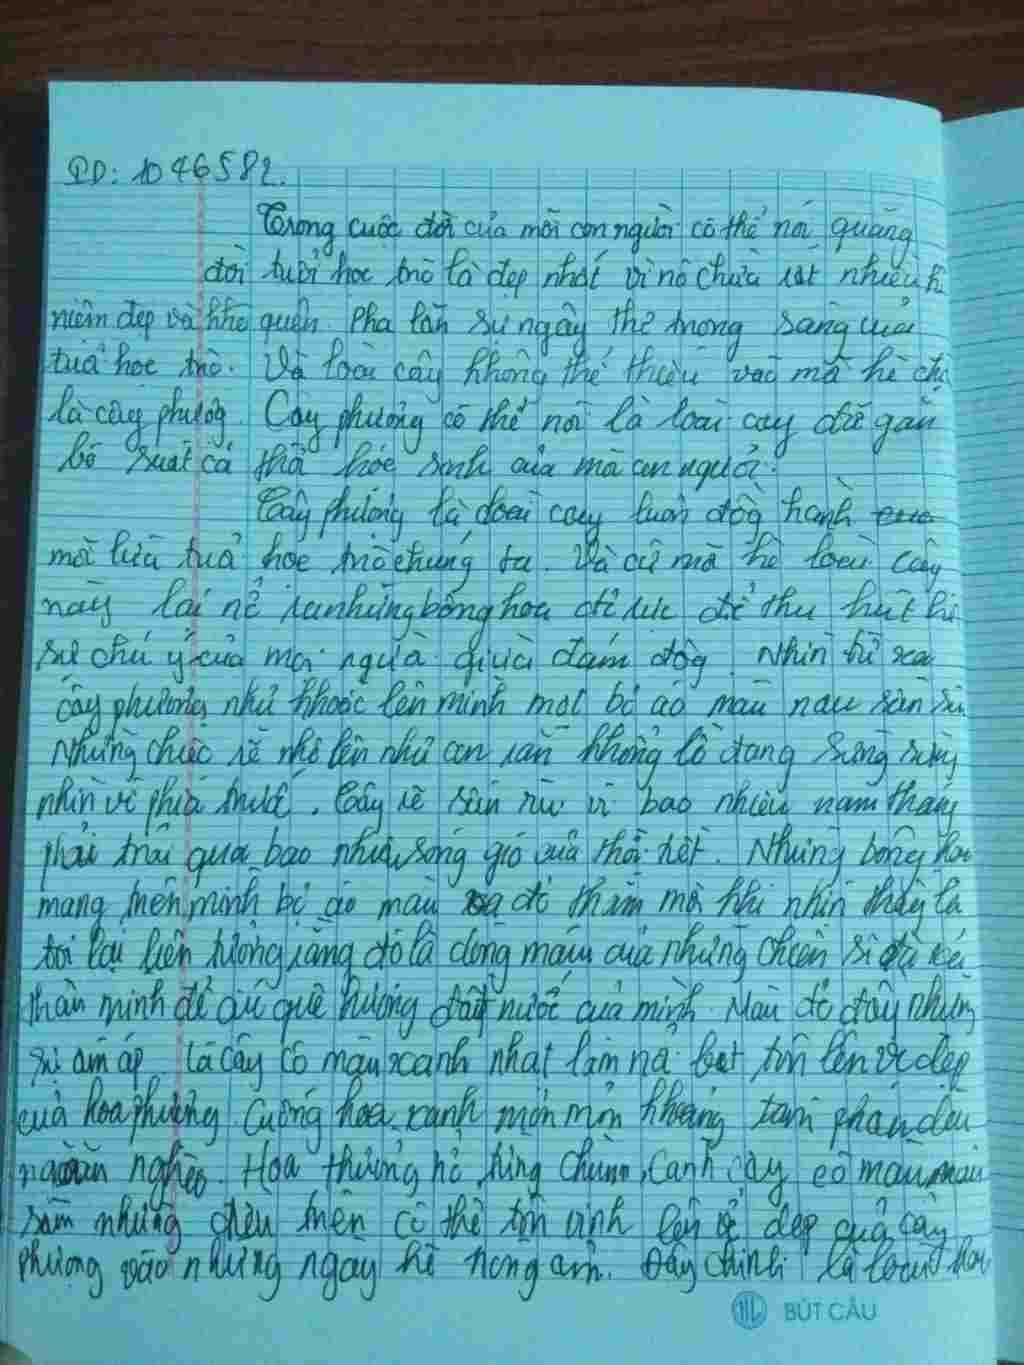 ID: 1046582.
Trong cuộc đời của mỗi con người có thể nói quãng
đời tuổi học trò là đẹp nhất vì nó chứa rất nhiều kỉ
niệm đẹp và khó quên pha lẫn sự ngây thơ trong sáng của
tuổi học trò. Và loài cây không thể thiếu vào mùa hè
là cây phượng. Cây phượng có thể nói là loài cây đã gắn
bó suốt cả thời học sinh của mỗi con người.
Cây phượng là loài cây luôn đồng hành
mỗi lứa tuổi học trò chúng ta. Và cứ mỗi hè loài cây
này lại nở những bông hoa đỏ rực để thu hút
sự chú ý của mọi người giữa đám đông. Nhìn từ xa
cây phượng như khoác lên mình một bộ áo màu nâu sần sùi
Những chiếc rễ nhô lên như con rắn khổng lồ đang sừng sững
nhìn về phía trước. Cây sần vì bao nhiêu năm tháng
phải trải qua bao nhiêu sóng gió của thời tiết. Những bông hoa
mang trên mình bộ áo màu đỏ thắm mỗi khi nhìn thấy là
tôi lại liên tưởng rằng đó là dòng máu của những chiến sĩ đã
thân mình để cứu quê hương đất nước của mình. Màu đỏ đầy những
sự ấm áp. Lá cây có màu xanh nhạt làm nổi bật tôn lên vẻ đẹp
của hoa phượng. Cuống hoa xanh mơn mởn khoảng tám phân
Hoa thường nở từng chùm, cành cây có màu nâu
sẫm những điều trên có thể tôn vinh lên vẻ đẹp của cây
phượng vào những ngày hè nóng ẩm. Đây chính là loài hoa
BÚT CÂU